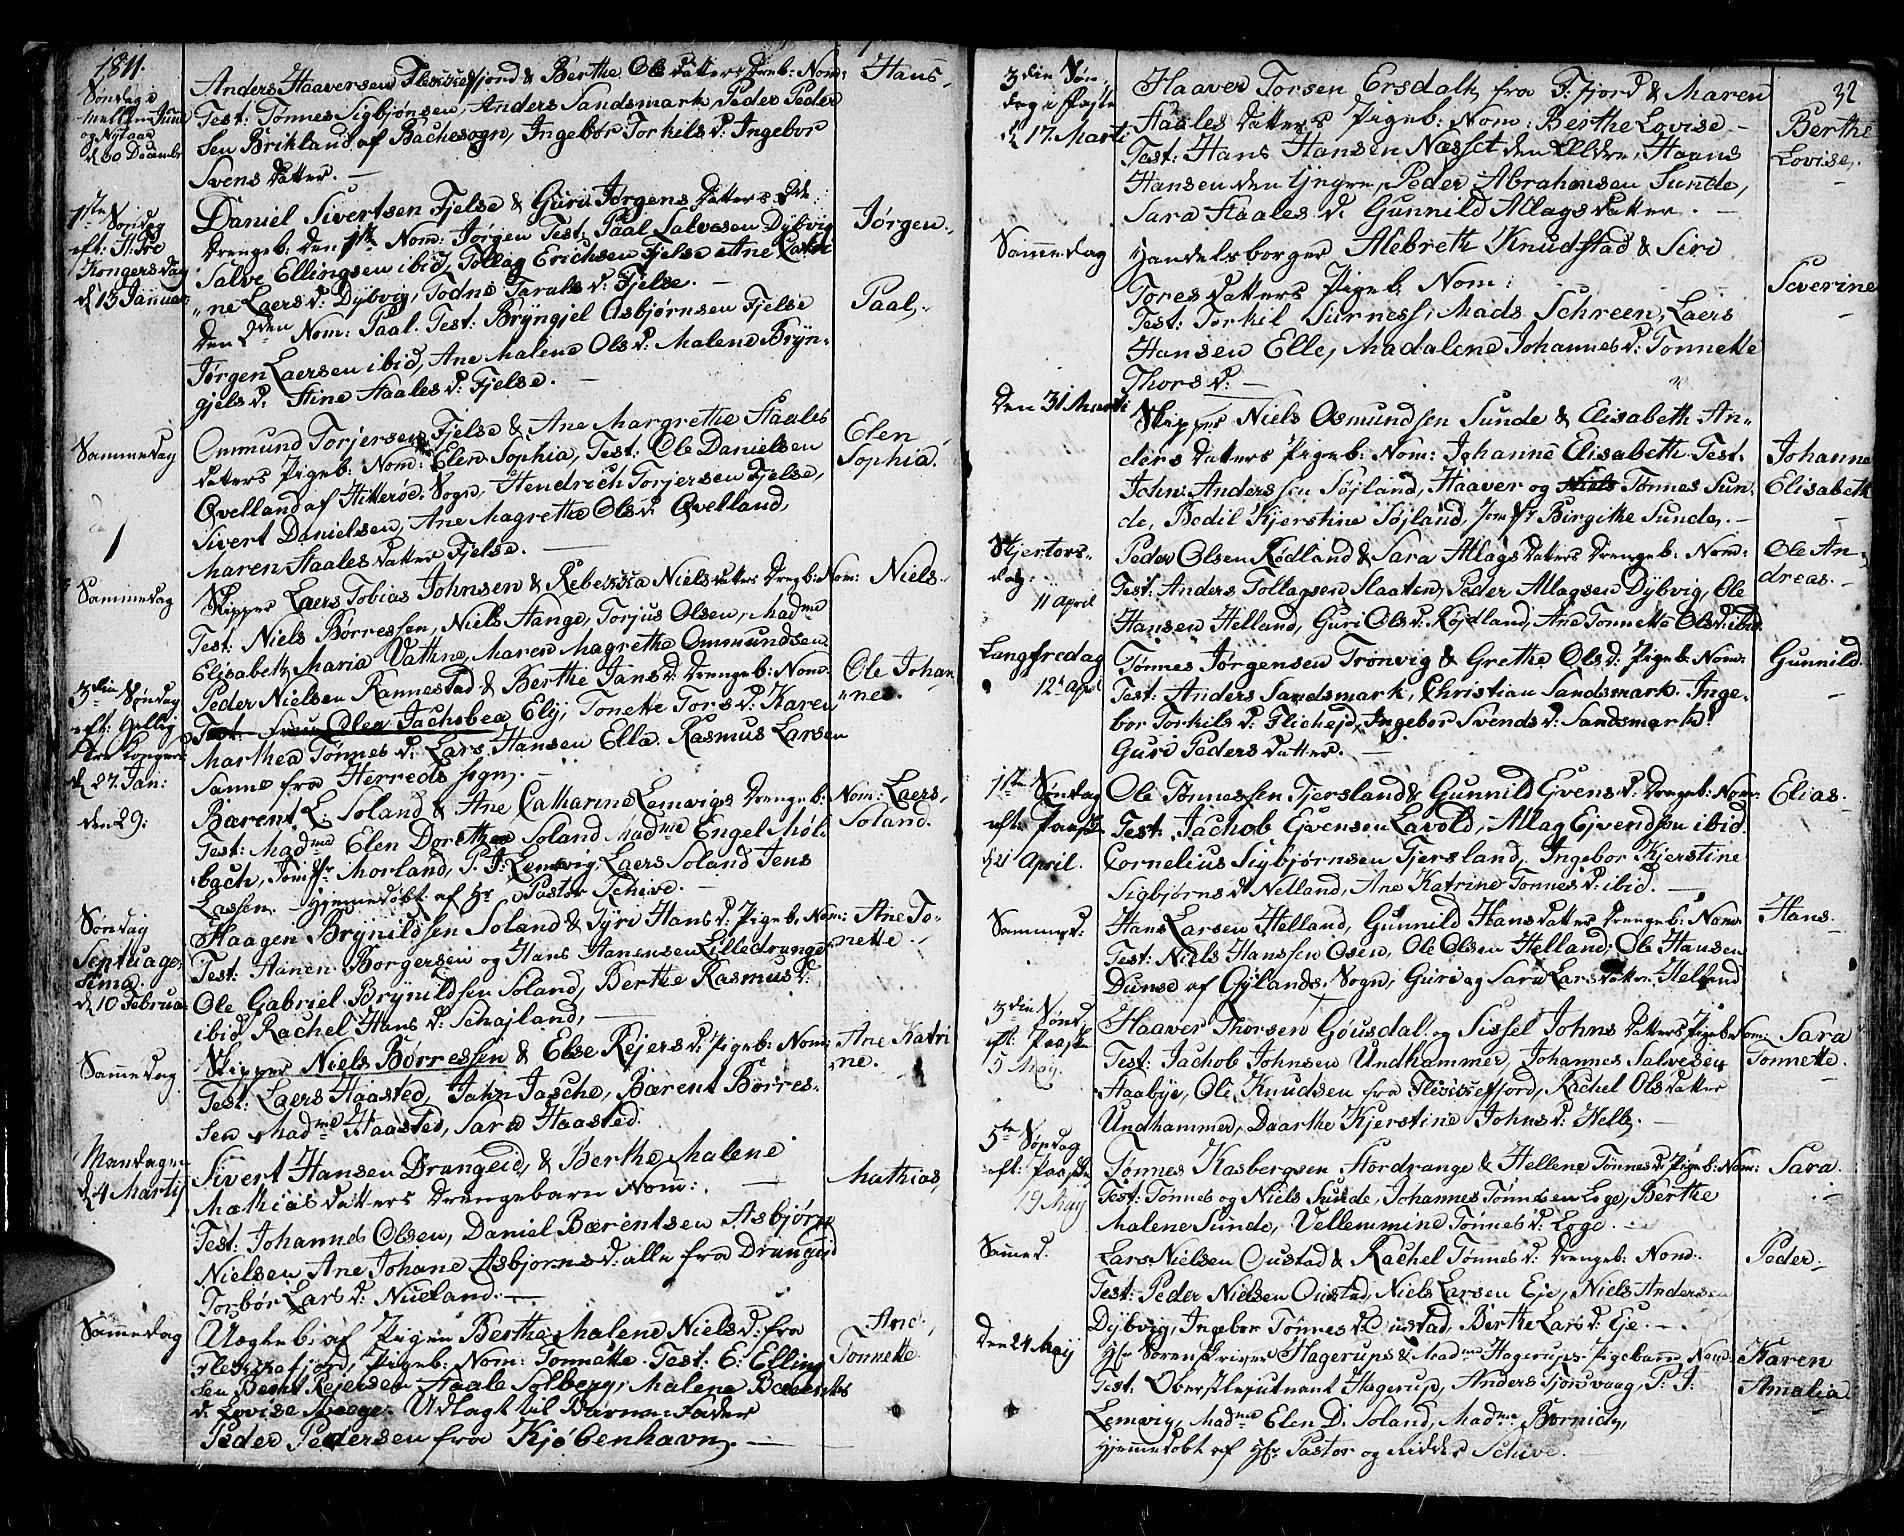 1811.
Søndag i
mellem Juul
og Nytaar
d 30 Decembr
Anders Haaversen Fleckefjord & Berthe Ols datters Drengeb: Nom: Hans
Test: Tønnes Sigbjønsen, Anders Sandsmark, Peder Peder
sen Brikland af Bache sogn, Ingebor Torkils d: Ingebor
Svens datter. —
1ste Søndag
eft: H: Tre
Konger dag
d 13 Januar
Daniel Sivertsen Fjelse & Guri Jørgens datters
Drengeb: den 1ste Nom: Jørgen Test: Paal Salvesen Dybvig
Jørgen.
Salve Ellingsen ibid, Tollag Erichsen Fjelse Ane Catri
ne Laers d: Dybvig, Todne Taralds d: Fjelse. —
den 2den Nom: Paal. Test: Bryngjel Asbjørnsen Fjelse
Paal,
Jørgen Laersen ibid, Ane Malene Ols d: Malene Bryn-
gjels d: Stine Staales d: Fjelse. —
Sammedag
Ommund Torjersen Fjelse & Ane Margrethe Staales
datters Pigeb: Nom: Elen Sophia, Test: Ole Danielsen
Elen
Sophia.
Qvelland af Hitterøe Sogn, Hendrich Torjersen Fjelse,
Sivert Danielsen, Ane Magrethe Ols d: Qvelland,
Maren Staales datter Fjelse. —
Sammedag
Skipper Laers Tobias Johnsen & Rebecka Niels datters Drengb: Nom: Niels
Test: Niels Børressen, Niels Hange, Torjus Olsen, Madme
Elisabeth Maria Vathne, Maren Magrethe Ommundsen
3die Søndag
eft: Hellig
Tre Konger
d 27 Jan:
Peder Nielsen Rannestad & Berthe Jans d: Drengeb: Nom:
Ole Johan
nes.
Test: Elen Jachobea Elÿ, Tonette Tors d: Karen
Marthea Tønnes d: Lars Hansen Ella. Rasmus Larsen
Sanne fra Herreds sogn. —
den 29:
Bærent L: Soland & Ane Catharine Lemvigs Drengeb: Nom: Laers
Soland.
Test: Madme Elen Dorthea Soland Madme Engel Møl-
bach, Jomfr Morland, P. J. Lemvig, Laers Soland Jens
Lassen. — hjemmedøbt af Hr Pastor Schive. —
Søndag
Septuage
sima.
d 10 Februar
Haagen Brynildsen Soland & Syri Hans d: Pigeb: Nom: Ane To-
nette.
Test: Aanen Borgersen og Hans Aanensen Lilledrange
Ole Gabriel Brynildsen Soland, Berthe Rasmus d:
ibid Rachel Hans d: Schajland, —
Sammedag
Skipper Niels Børressen & Else Rejers d: Pigeb: Nom: Ane Katri
ne.
Test: Laers Haasted, John Jasche, Bærent Børres-
sen Madme Haasted, Sara Haasted.
Mandagen
d 4 Martij
Sivert Hansen Drangeid, & Berthe Malene
Mathias datters Drengebarn Nom: —
Mathias,
Test: Johannes Olsen, Daniel Bærentsen Asbjørn
Nielsen Ane Johane Asbjorns d: alle fra Drangeid
Torbør Lars d: Nueland. —
Samedag
Uegteb: af Pigen Berthe Malene Niels d: fra
Ane
Fleckefjord, Pigeb: Nom: Tonnette. Test: E: Elling
Tonnette
sen Bernt Rejersen Staale Solberg, Malene Bærents
d: Lovise Udlagt til Barne-Fader
Peder Pedersen fra Kjøbenhavn. —
32
3die Søn-
dag i Faste
d 17. Marti
Haaver Torsen Ersdal fra F: Fjord & Maren
Staales datters Pigeb: Nom: Berthe Lovise —
Berthe
Lovise.
Test: Hans Hansen Næsset den Ældre, Haans
Hansen den Yngre, Peder Abrahamsen Sunde,
Sara Staales d: Gunnild Allags datter. —
Sammedag
Handelsborger Alebreth Knudstad & Siri
Tores datters Pigeb: Nom:
Severine
Test: Torkil Surness, Mads Schreen, Laers
Hansen Elle, Madalene Johannes d: Tonnette
Thors d: —
den 31 Marti
Skipper Niels Osmundsen Sunde & Elisabeth An-
ders datters Pigeb: Nom: Johanne Elisabeth. Test:
Johanne
Elisabeth
John Anderssen Søjland, Haaver og Niels Tønnes Sun-
de, Bodil Kjerstine Søjland, Jomfr Birgitte Sunde. —
Skjertors-
dag
11 April
Peder Olsen Rødland & Sara Allags datters Drengeb: Nom:
Ole An-
dreas.
Test: Anders Tollagsen Slaaten, Peder Allagsen Dybvig, Ole
Hansen Helland, Guri Ols d: Røjdland, Ane Tonnette Ols d: ibid
Langfredag
12te April
Tønnes Jørgensen Tronvig & Grethe Ols d: Pigeb: Nom:
Gunnild.
Test: Anders Sandsmark, Christian Sandsmark. Inge-
bor Torkils d: Flichejd, Ingebor Svends d: Sandsmark
Guri Peders datter. —
1ste Søndag
eft: Paaske
d 21 April.
Ole Tønnessen Tjersland & Gunnild Ejvens d: Drengeb: Nom: Elias.
Test: Jachob Ejvensen Lavold, Allag Ejvendsen ibid
Cornelius Sigbjørnsen Tjersland, Ingebor Kjerstine
Sigbjørns d: Nelland, Ane Katrine Tonnes d: ibid. —
Sammed:
Hans Larsen Helland, Gunnild Hans datters Drengeb: Nom:
Hans
Test: Niels Hanssen Osen, Ole Olsen Helland, Ole Hansen
Dunse af Gylands Sogn, Guri og Sara Lars datter Helland
3die Sønd:
eft: Paaske
5 Maÿ.
Haaver Thorsen Gousdal. og Sissel Johns datters Pigeb: Nom: Sara
Tonnette.
Test: Jachob Johnsen Undhammer, Johannes Salvesen
Haabye, Ole Knudsen fra Fleckefjord, Rachel Ols datter
Undhammer, Daarthe Kjerstine Johns d: Helle. —
5te Søndag
eft: Paaske
19 Maÿ
Tønnes Kasbergsen Stordrange & Hellene Tønnes d: Pigeb: Nom: Sara.
Test: Tønnes og Niels Sunde, Johannes Tønnesen Loge, Berthe
Malene Sunde, Vellemmine Tønnes d: Loge. —
Samed.
Lars Nielsen Oustad & Rachel Tønnes d: Drengeb: Nom:
Peder
Test: Peder Nielsen Oustad, Niels Larsen Eje, Niels Andersen
Dybvig, Ingebor Tønnes d: Oustad, Berthe Lars d: Eje. —
den 24 Maÿ
Hr Sorenskriver Hagerups & Madme Hagerups Pigebarn Nom:
Karen
Amalia
Test: Oberstlieutnant Hagerup, Anders Sjonsvaag P. J.
Lemvig, Madme Elen D: Soland, Madme Bornich,
Hjemmedøbt af Hr Pastor og Ridder Schive.